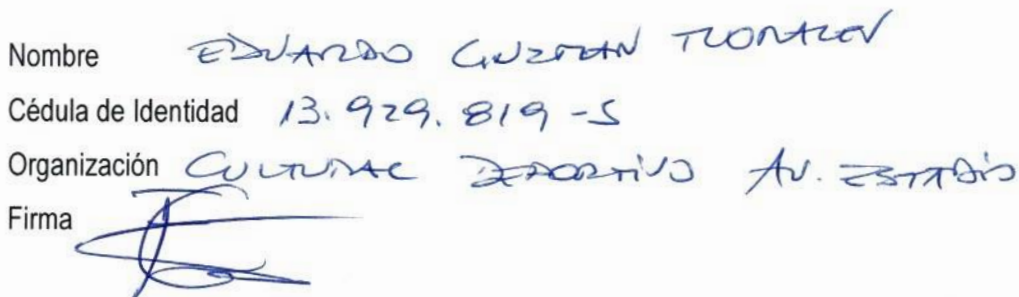 Nombre EDUARDO GUZMAN
Cédula de Identidad 13.929.819-5
Organización CULTURAL DEPORTIVO AV. ESTADIO
Firma